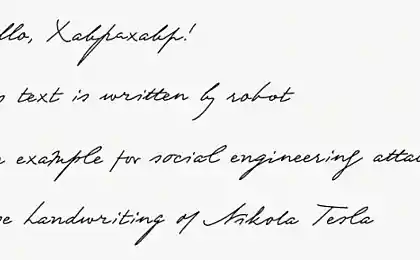 llo, Хабрахабр!
s text is written by robot
example for social engineering atta
e handwriting of Nikola Tesla